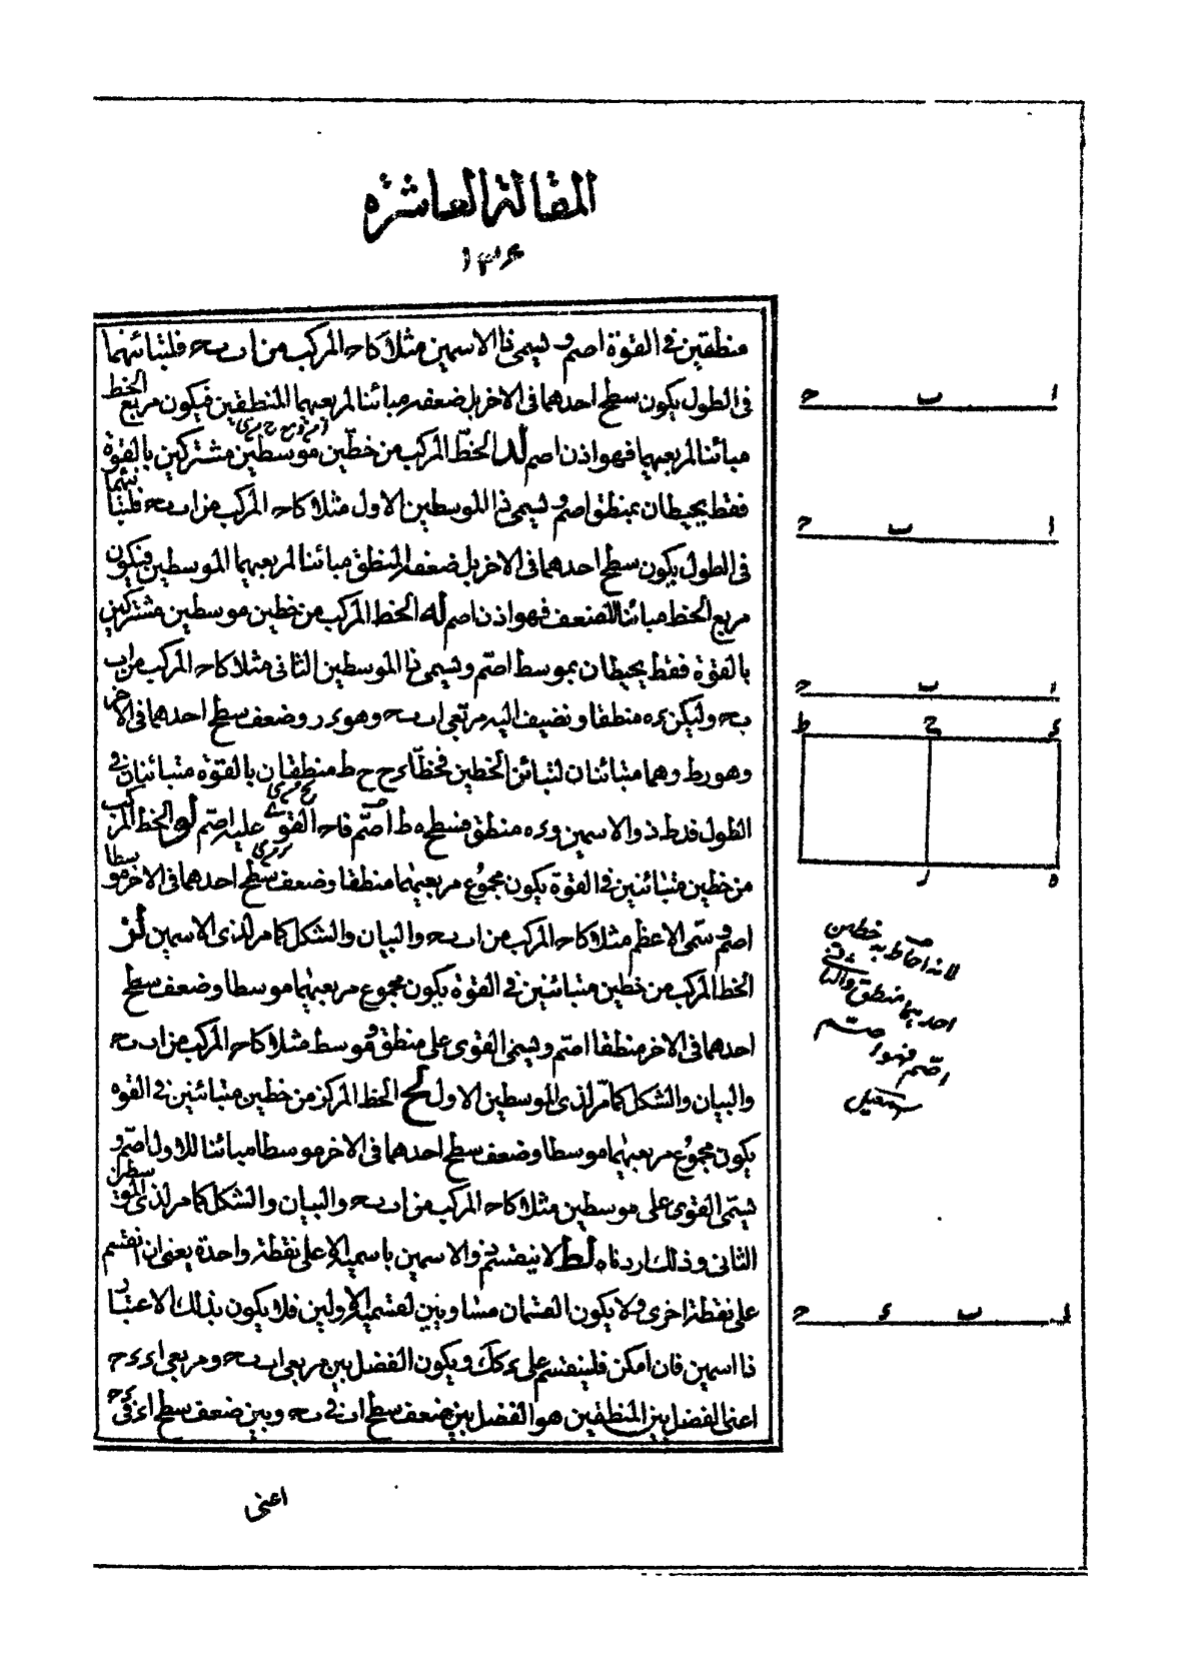 المقالة العاشرة
١٣٤
منطقين فى القوة اصم و ليسمى ذا الاسمين مثلا كا ح المركب من ا ب ب ح فلتباينهما
فى الطول يكون سطح احدهما فى الاخر بل ضعفه مبائنا لمربعيهما المنطقين فيكون مربع الخط
مبائنا لمربعيهما فهو اذن اصم لد الخط المركب من خطين موسطين مشتركين بالقوة
فقط يحيطان بمنطق اصم و ليسمى ذا الموسطين الاول مثلا كا ح المركب من ا ب ب ح فلتباينهما
فى الطول يكون سطح احدهما فى الاخر بل ضعفه المنطق مبائنا لمربعيهما الموسطين فيكون
مربع الخط مبائنا للضعف فهو اذن اصم له الخط المركب من خطين موسطين مشتركين
بالقوة فقط يحيطان بموسط اصم و يسمى ذا الموسطين الثانى مثلا كا ح المركب من ا ب
ب ح وليكن ء ه منطقا و نضيف اليه مربعى ا ب ب ح وهو ء ر و ضعف سطح احدهما فى الاخر
وهو ر ط وهما متبائنان لتبائن الخطين فخطا ء ح ح ط منطقان بالقوة متبائنان فى
الطول فد ط ذو الاسمين و ء ه منطق فسطح ه ط اصم فا ح القوى عليه اصم لو الخط المركب
من خطين متبائنين فى القوة يكون مجموع مربعيهما منطقا و ضعف سطح احدهما فى الاخر موسطا
اصم و سمى الاعظم مثلا كا ح المركب من ا ب ب ح والبيان والشكل كما مر لذى الاسمين لز
الخط المركب من خطين متبائنين فى القوة يكون مجموع مربعيهما موسطا و ضعف سطح
احدهما فى الاخر منطقا اصم و يسمى القوى على منطق و موسط مثلا كا ح المركب من ا ب ب ح
والبيان والشكل كما مر لذى الموسطين الاول لح الخط المركز من خطين متبائنين فى القوه
يكون مجموع مربعيهما موسطا و ضعف سطح احدهما فى الاخر موسطا مبائنا للاول اصم و
يسمى القوى على موسطين مثلا كا ح المركب من ا ب ب ح والبيان والشكل كما مر لذى الموسطين
الثانى و ذلك اردناه لط لا ينقسم ذو الاسمين باسميه الا على نقطة واحدة يعنى ان انقسم
على نقطة اخرى و لا يكون القسمان مساويين لقسميه الاولين فلا يكون بذلك الاعتبار
ذا اسمين فان امكن فلينقسم على ء كك و يكون الفضل بين مربعى ا ب ب ح و مربعى ا ء ء ح
اعنى الفضل بين المنطقين هو الفضل بين ضعف سطح ا ب فى ب ح و بين ضعف سطح ا ء فى ء ح
اعنى
ا ب ح
ا ب ح
ا ب ح
ء ح ط
ه ر
لانه احاط به خطين
احديهما منطق والثانى
اصم فهو اصم
ا ب ء ح